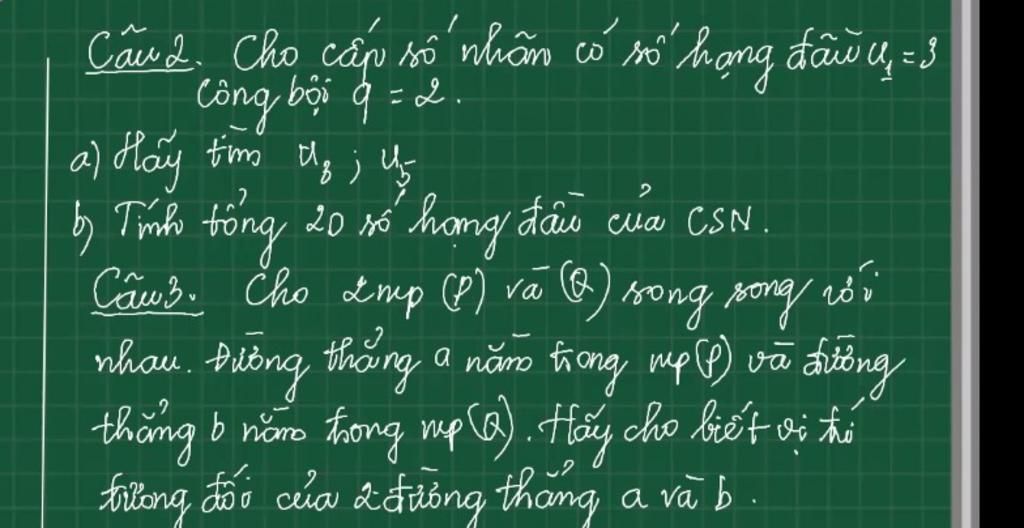 Câu 2. Cho cấp số nhân có số hạng đầu u₁ = 3
Công bội q = 2.
a) Hãy tìm u₃ ; u₅
b) Tính tổng 20 số hạng đầu của CSN.
Câu 3. Cho 2 mp (P) và (Q) song song với
nhau. Đường thẳng a nằm trong mp (P) và đường
thẳng b nằm trong mp (Q). Hãy cho biết vị trí
tương đối của 2 đường thẳng a và b.